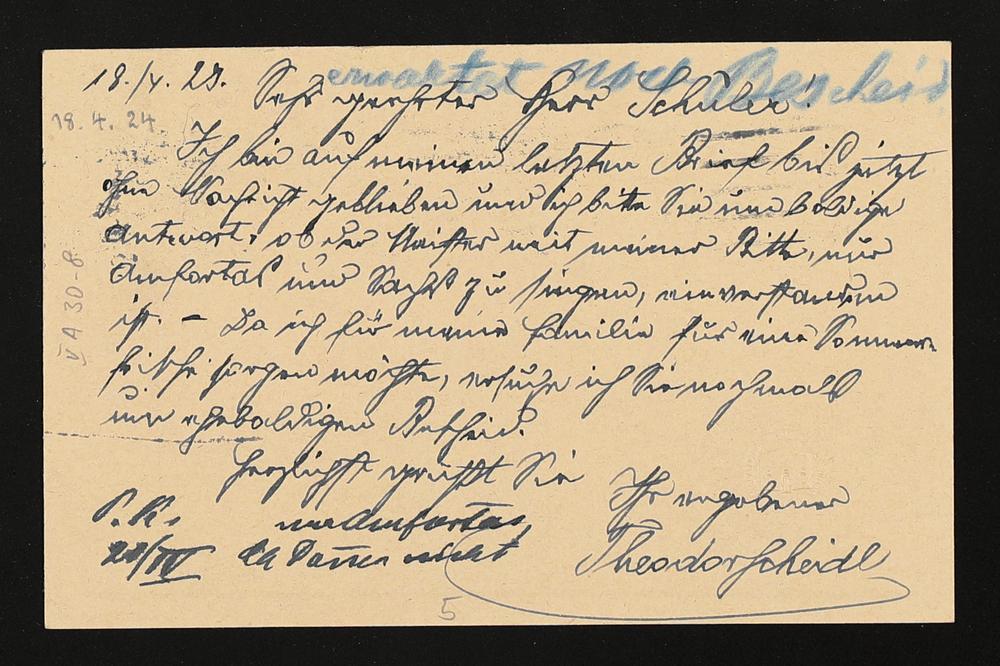 erwartet noch Bescheid
18./4. 24.
Sehr geehrter Herr Schuler!
18. 4. 24
Ich bin auf meinen letzten Brief bis jetzt
ohne Nachricht geblieben und ich bitte Sie um baldige
Antwort, ob der Meister mit meiner Bitte, nur
Amfortas und Sachs zu singen, einverstanden
ist. – Da ich für meine Familie für eine Sommer-
frische sorgen möchte, ersuche ich Sie nochmals
um ehebaldigen Bescheid.
Herzlichst grüßt Sie
Ihr ergebener
Theodor Scheidl
nur Amfortas,
nicht
V A 30-8
5